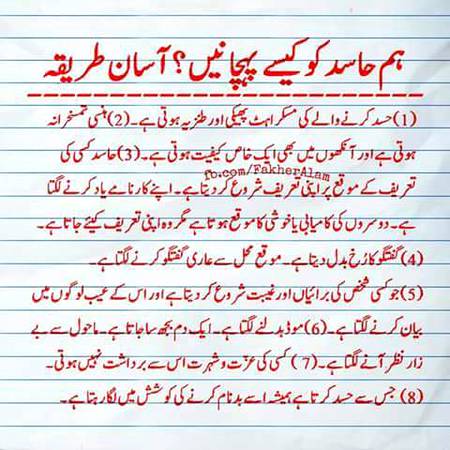 ہم حاسد کو کیسے پہچانیں؟ آسان طریقہ
(1) حسد کرنے والے کی مسکراہٹ پھیکی اور طنزیہ ہوتی ہے۔ (2) ہنسی تمسخرانہ
ہوتی ہے اور آنکھوں میں بھی ایک خاص کیفیت ہوتی ہے۔ (3) حاسد کسی کی
fb.com/FakherAlam
تعریف کے موقع پر اپنی تعریف شروع کر دیتا ہے۔ اپنے کارنامے یاد کرنے لگتا
ہے۔ دوسروں کی کامیابی یا خوشی کا موقع ہوتا ہے مگر وہ اپنی تعریف کیئے جاتا ہے۔
(4) گفتگو کا رُخ بدل دیتا ہے۔ موقع محل سے عاری گفتگو کرنے لگتا ہے۔
(5) جو کسی شخص کی برائیاں اور غیبت شروع کر دیتا ہے اور اس کے عیب لوگوں میں
بیان کرنے لگتا ہے۔ (6) موڈ بدلنے لگتا ہے۔ ایک دم بجھ سا جاتا ہے۔ ماحول سے بے
زار نظر آنے لگتا ہے۔ (7) کسی کی عزّت و شہرت اس سے برداشت نہیں ہوتی۔
(8) جس سے حسد کرتا ہے ہمیشہ اسے بدنام کرنے کی کوشش میں لگا رہتا ہے۔